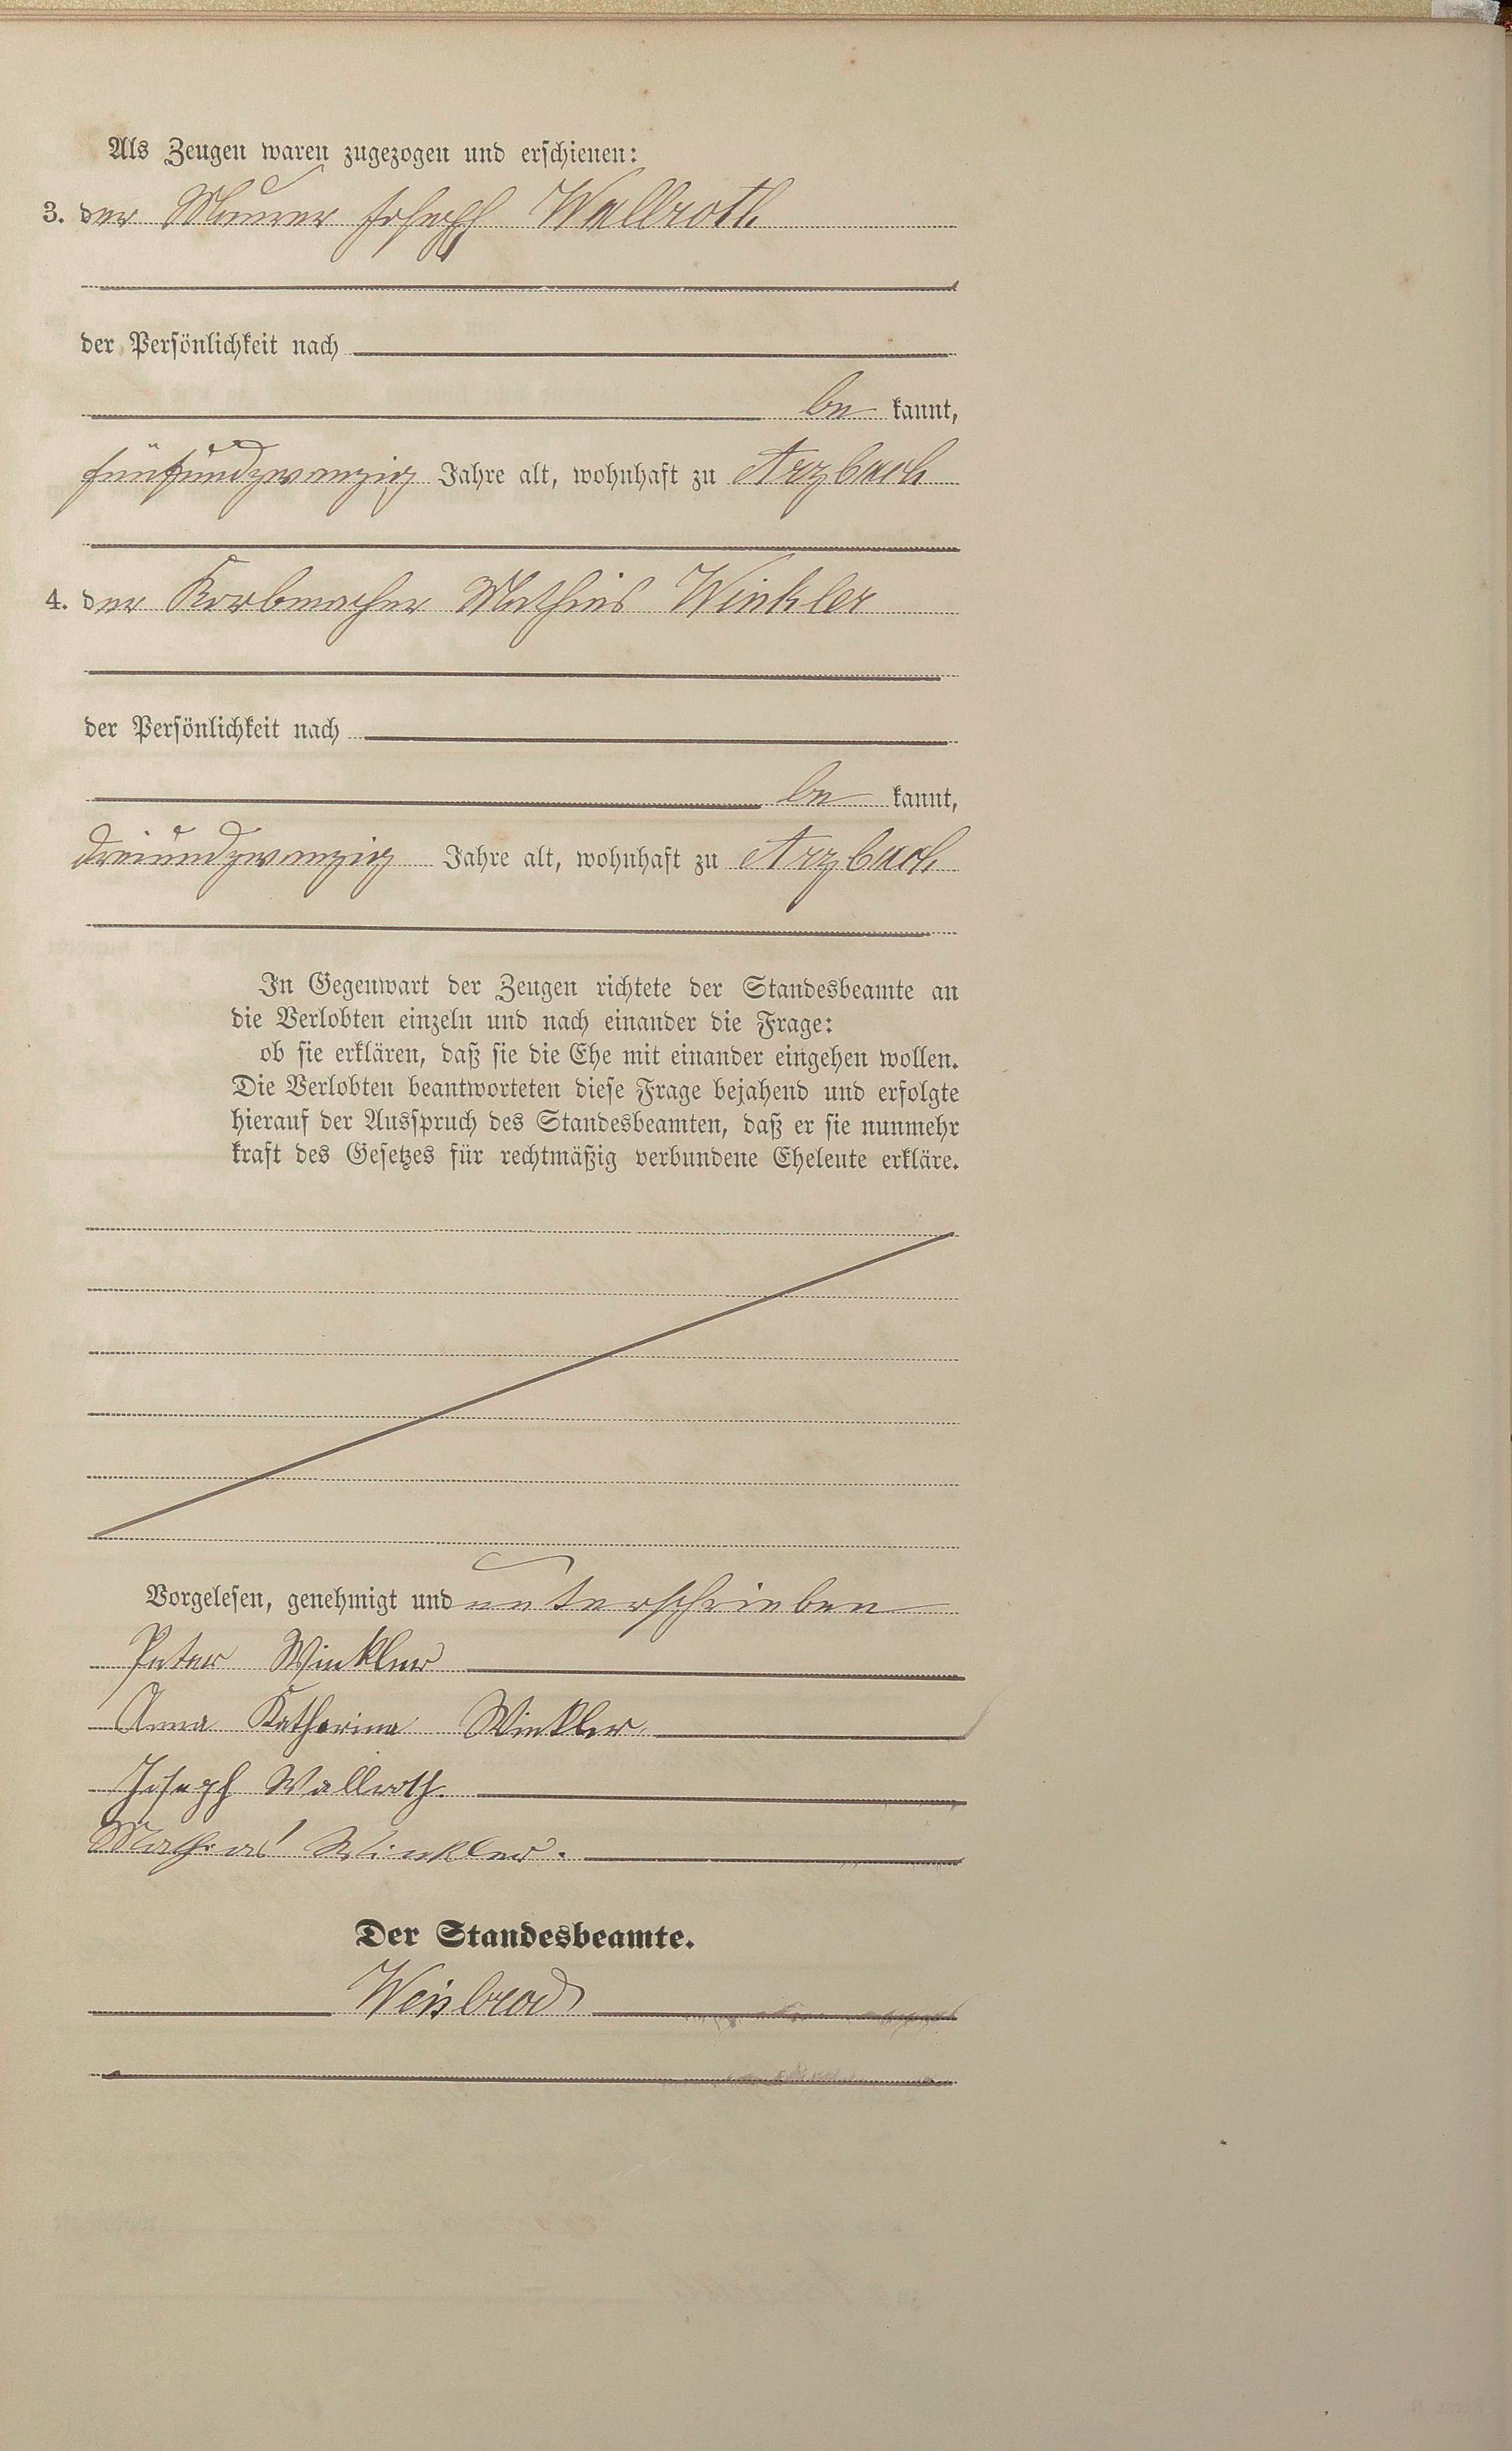 Als Zeugen waren zugezogen und erschienen:
3. der Maurer Joseph Wallroth
der Persönlichkeit nach
be kannt,
fünfundzwanzig Jahre alt, wohnhaft zu Arzbach
4. der Korbmacher Mathias Winkler
der Persönlichkeit nach
be kannt,
dreiundzwanzig Jahre alt, wohnhaft zu Arzbach
In Gegenwart der Zeugen richtete der Standesbeamte an
die Verlobten einzeln und nach einander die Frage:
ob sie erklären, daß sie die Ehe mit einander eingehen wollen.
Die Verlobten beantworteten diese Frage bejahend und erfolgte
hierauf der Ausspruch des Standesbeamten, daß er sie nunmehr
kraft des Gesetzes für rechtmäßig verbundene Eheleute erkläre.
Vorgelesen, genehmigt und unterschrieben
Peter Winkler
Anna Katharina Winkler
Joseph Wallroth.
Mathias Winkler.
Der Standesbeamte.
Weisbrod